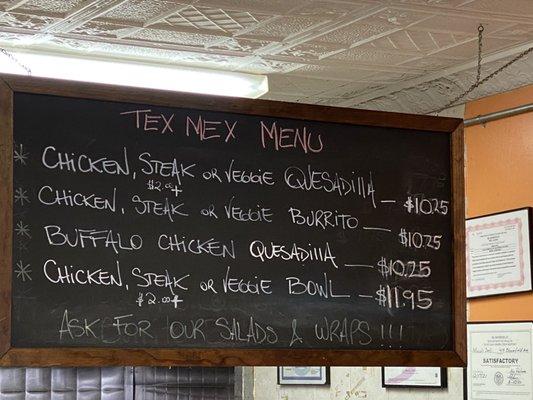 TEX MEX MENU
* CHICKEN, STEAK or VEGGIE QUESADILLA — $10.25
$2.00+
* CHICKEN, STEAK or VEGGIE BURRITO — $10.25
* BUFFALO CHICKEN QUESADILLA — $10.25
* CHICKEN, STEAK or VEGGIE BOWL — $11.95
$2.00+
ASK FOR OUR SALADS & WRAPS !!!
SATISFACTORY